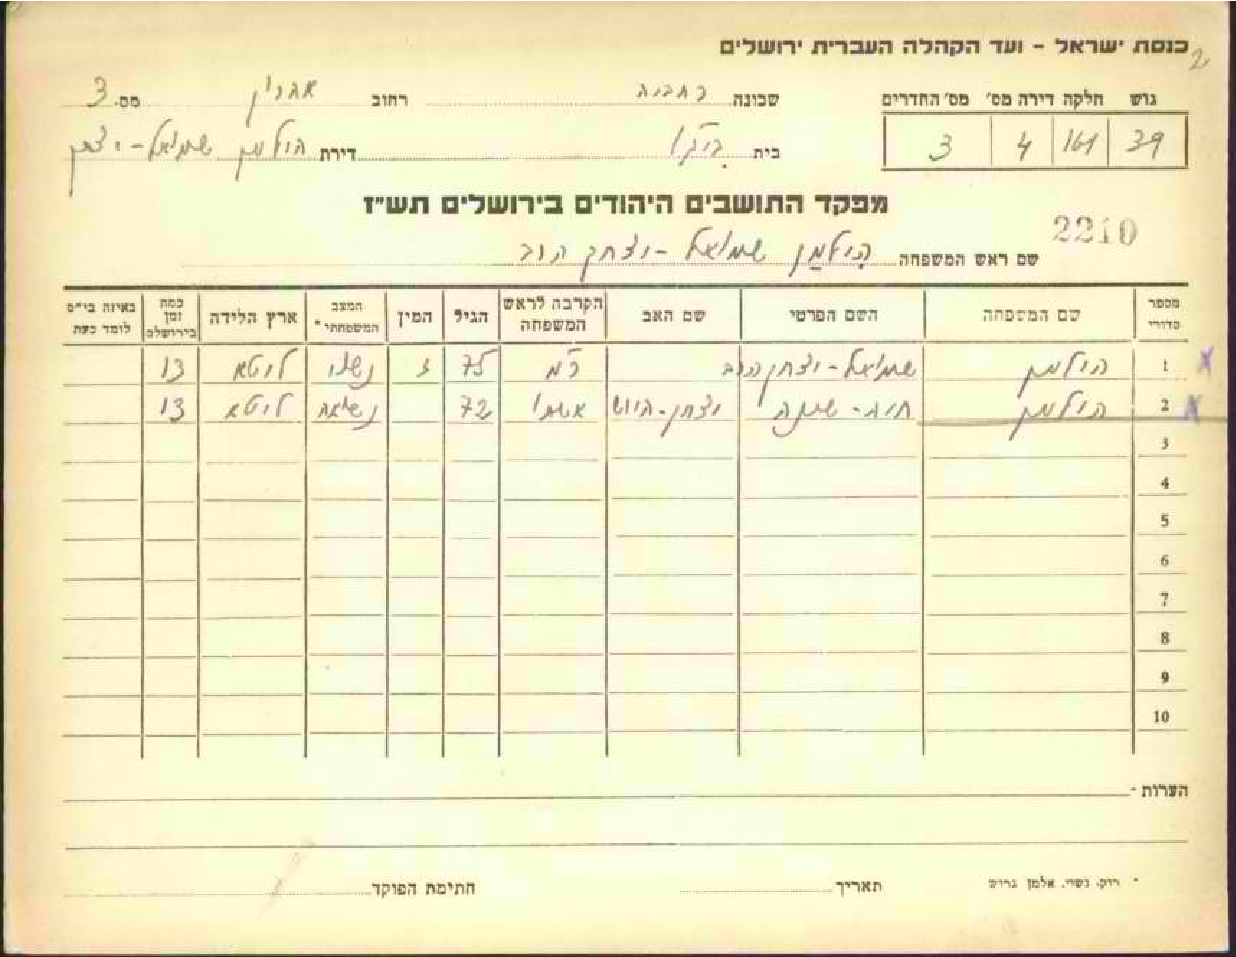 כנסת ישראל - ועד הקהלה העברית ירושלים
2
גוש חלקה דירה מס' מס' החדרים
39 161 4 3
שכונה רחביה רחוב מס. 3
בית דירת הילמן שמואל-יצחק
מפקד התושבים היהודים בירושלים תש"ז
2210
שם ראש המשפחה הילמן שמואל-יצחק הרב
מספר סדורי שם המשפחה השם הפרטי שם האב הקרבה לראש המשפחה הגיל המין המצב המשפחתי * ארץ הלידה כמה זמן בירושלים באיזה בי"ס לומד כעת
1 הילמן שמואל-יצחק הרב ר"מ 75 ז נשוי ליטא 13
2 הילמן חיה- יצחק- אשתו 72 נשואה ליטא 13
3
4
5
6
7
8
9
10
הערות -
* רוק, נשוי, אלמן גרוש תאריך חתימת הפוקד